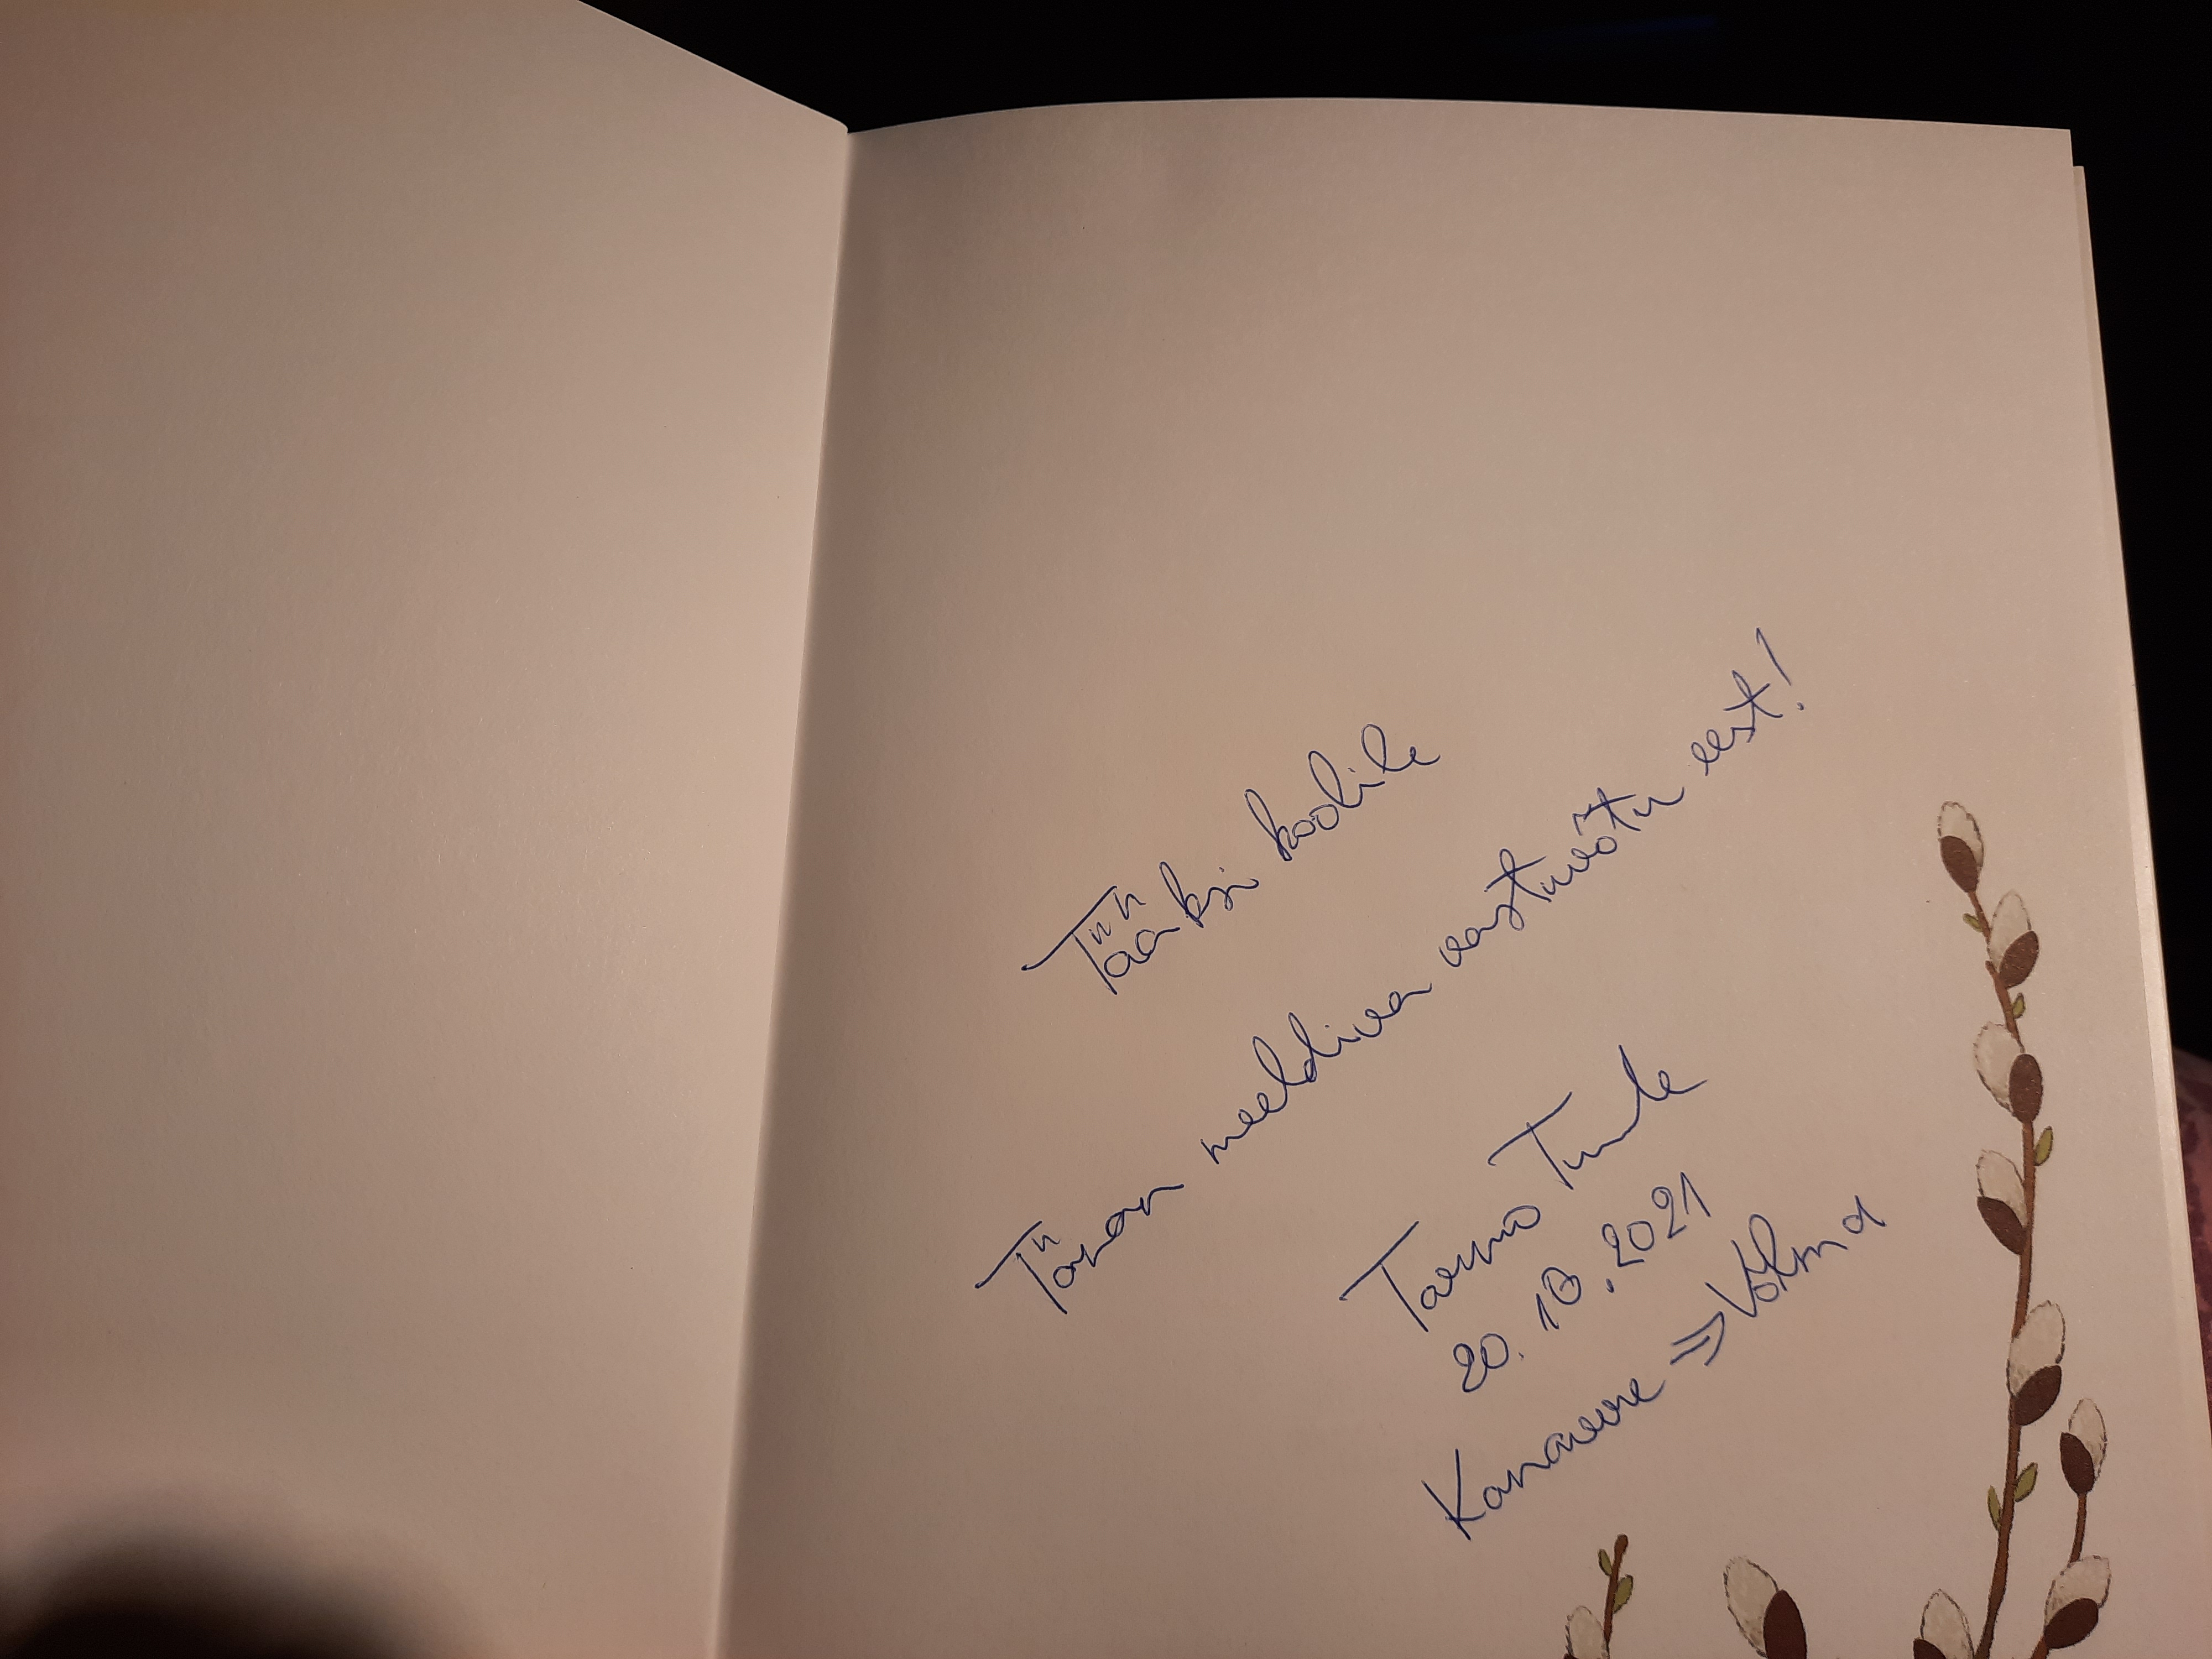 Tääksi koolile
Tänan meeldiva vastuvõtu eest!
Tarmo Tuule
20.10.2021
Kanavere => Võhma